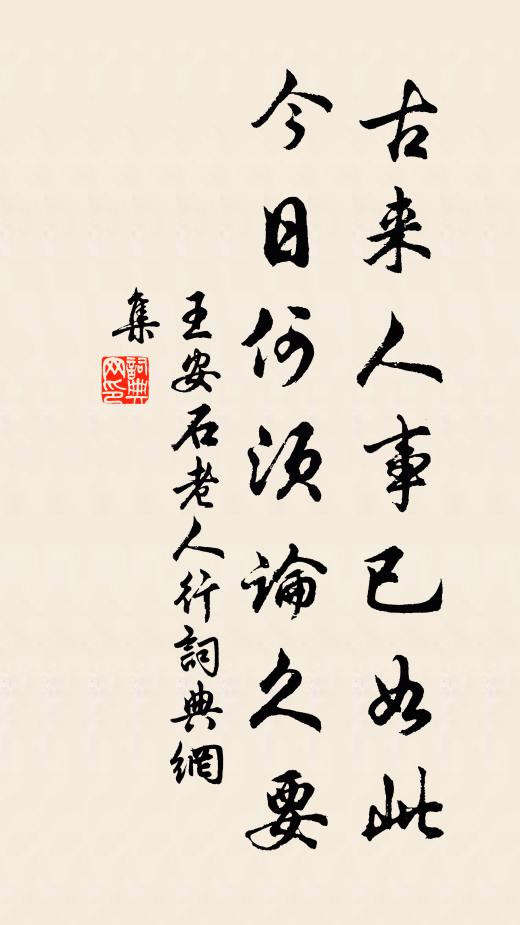 古来人事已如此
今日何須論久要
王安石老人行詞典網
集
詞典网印